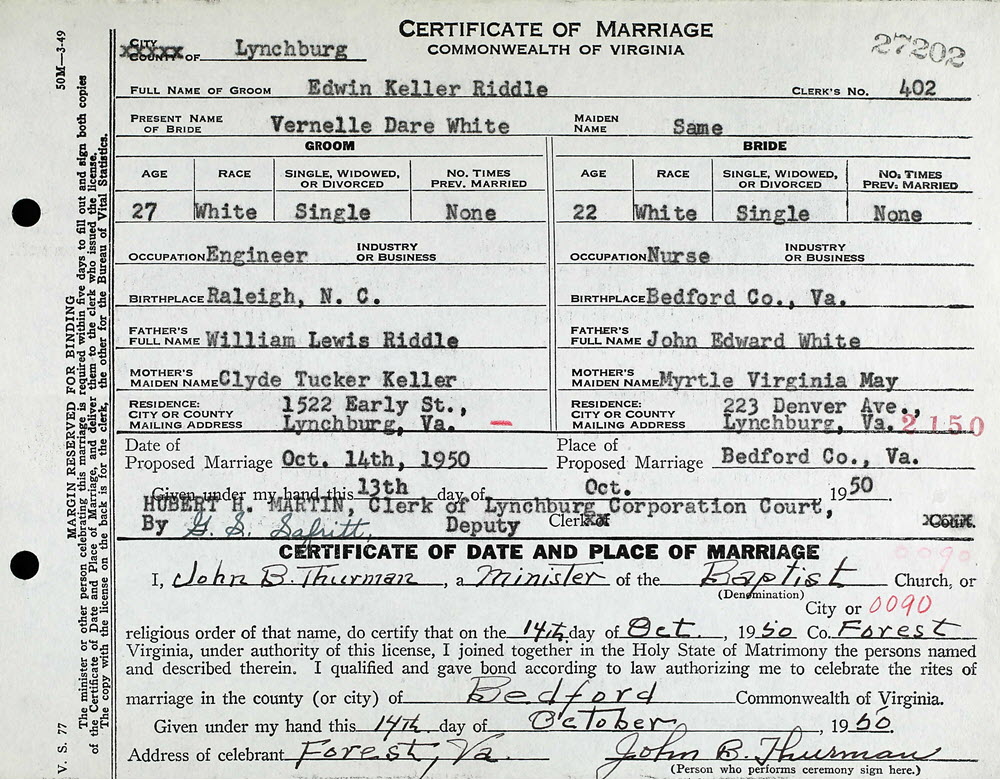 CERTIFICATE OF MARRIAGE
COMMONWEALTH OF VIRGINIA
27202
CITY
COUNTY OF Lynchburg
FULL NAME OF GROOM Edwin Keller Riddle CLERK'S NO. 402
PRESENT NAME OF BRIDE Vernelle Dare White MAIDEN NAME Same
GROOM BRIDE
AGE RACE SINGLE, WIDOWED, OR DIVORCED NO. TIMES PREV. MARRIED AGE RACE SINGLE, WIDOWED, OR DIVORCED NO. TIMES PREV. MARRIED
27 White Single None 22 White Single None
OCCUPATION Engineer INDUSTRY OR BUSINESS OCCUPATION Nurse INDUSTRY OR BUSINESS
BIRTHPLACE Raleigh, N. C. BIRTHPLACE Bedford Co., Va.
FATHER'S FULL NAME William Lewis Riddle FATHER'S FULL NAME John Edward White
MOTHER'S MAIDEN NAME Clyde Tucker Keller MOTHER'S MAIDEN NAME Myrtle Virginia May
RESIDENCE: CITY OR COUNTY MAILING ADDRESS 1522 Early St., Lynchburg, Va. RESIDENCE: CITY OR COUNTY MAILING ADDRESS 223 Denver Ave., Lynchburg, Va. 2150
Date of Proposed Marriage Oct. 14th, 1950 Place of Proposed Marriage Bedford Co., Va.
Given under my hand this 13th day of Oct. , 1950.
HUBERT H. MARTIN, Clerk of Lynchburg Corporation Court,
By G. S. Safritt, Deputy Clerk of Court.
CERTIFICATE OF DATE AND PLACE OF MARRIAGE
0090
I, John B. Thurman, a Minister of the Baptist Church, or
(Denomination)
City or 0090
religious order of that name, do certify that on the 14th day of Oct., 1950 Co. Forest
Virginia, under authority of this license, I joined together in the Holy State of Matrimony the persons named
and described therein. I qualified and gave bond according to law authorizing me to celebrate the rites of
marriage in the county (or city) of Bedford Commonwealth of Virginia.
Given under my hand this 14th day of October, 1950.
Address of celebrant Forest, Va. John B. Thurman
(Person who performs ceremony sign here.)
50M—3-49
MARGIN RESERVED FOR BINDING
The minister or other person celebrating this marriage is required within five days to fill out and sign both copies
of the Certificate of Date and Place of Marriage, and deliver them to the clerk who issued the license.
The copy with the license on the back is for the clerk, the other for the Bureau of Vital Statistics.
V. S. 77